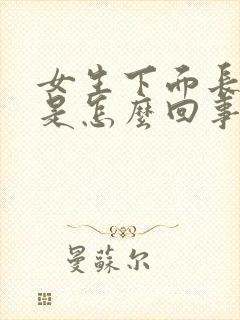 女生下而長
是怎麼回事
曼蘇尔